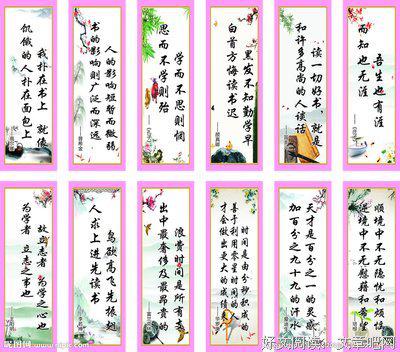 我扑在书上 就像
饥饿的人扑在面包上
人的影响短暂而微弱
书的影响则广泛而深远
——普希金
学而不思则惘
思而不学则殆
黑发不知勤学早
白首方悔读书迟
——颜真卿
读一切好书，就是
和许多高尚的人谈话
吾生也有涯
而知也无涯
故立志者 为学之心也
为学者 立志之事也
鸟欲高飞先振翅
人求上进先读书
浪费时间是所有支
出中最奢侈及最昂贵的
时间是由分秒积成的
善于利用零星时间的人
才会做出更大的成绩
天才是百分之一的灵感
加百分之九十九的汗水
顺境中不无隐忧和烦恼
逆境中不无慰藉和
昵图网 www.nipic.com